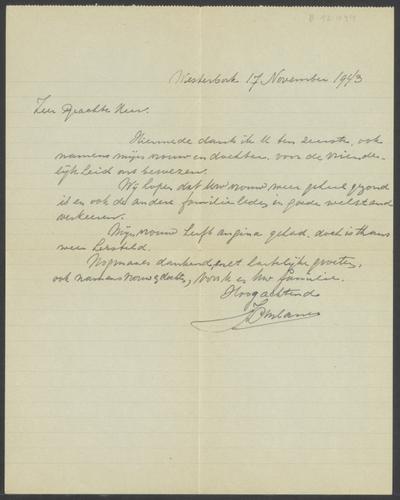 Westerbork 17 November 1943
Zeer Geachte Heer.
Hiermede dank ik U ten zeerste, ook
namens mijn vrouw en dochter, voor de vriende-
lijkheid ons bewezen.
Wij hopen dat Uw vrouw weer geheel gezond
is en ook de andere familieleden in goede welstand
verkeeren.
Mijn vrouw heeft angina gehad, doch is thans
weer hersteld.
Nogmaals dankend, met hartelijke groeten,
ook namens vrouw & dochter, voor U en Uw familie.
Hoogachtend